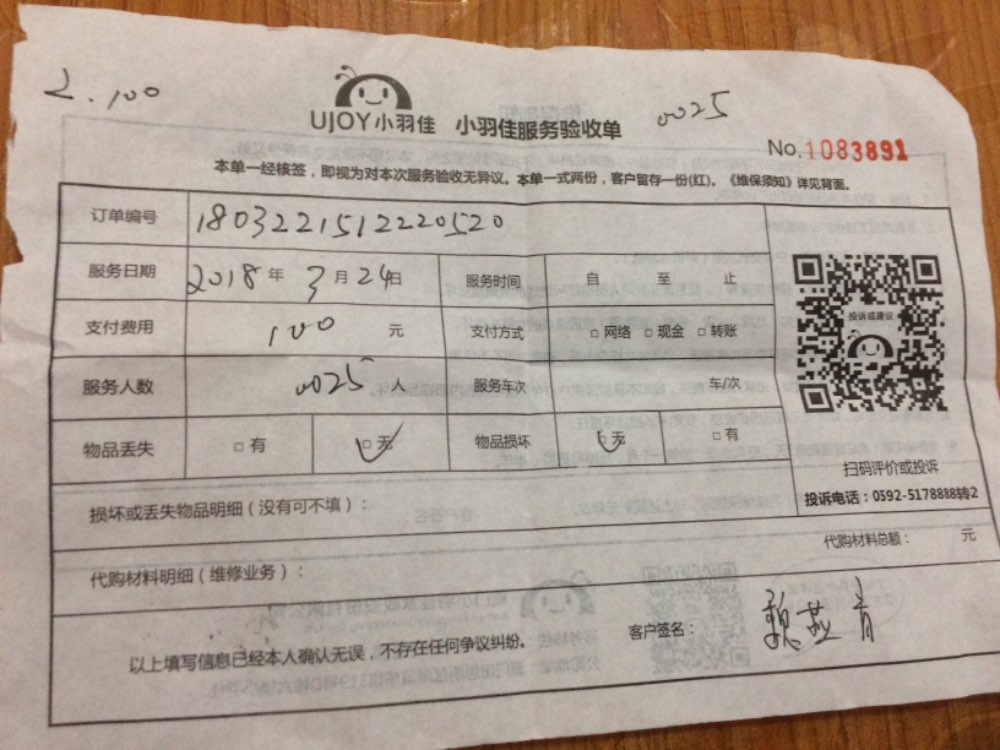 2.100
UJOY小羽佳 小羽佳服务验收单
0025
No.1083891
本单一经核签，即视为对本次服务验收无异议。本单一式两份，客户留存一份(红)。《维保须知》详见背面。
订单编号 1803221512220520
服务日期 2018年3月24日 服务时间 自 至 止
支付费用 100 元 支付方式 □网络 □现金 □转账
服务人数 0025 人 服务车次 车/次
物品丢失 □有 □无 物品损坏 □无 □有
投诉或建议
扫码评价或投诉
投诉电话：0592-5178888转2
损坏或丢失物品明细（没有可不填）：
代购材料总额： 元
代购材料明细（维修业务）：
以上填写信息已经本人确认无误，不存在任何争议纠纷。
客户签名： 魏燕青